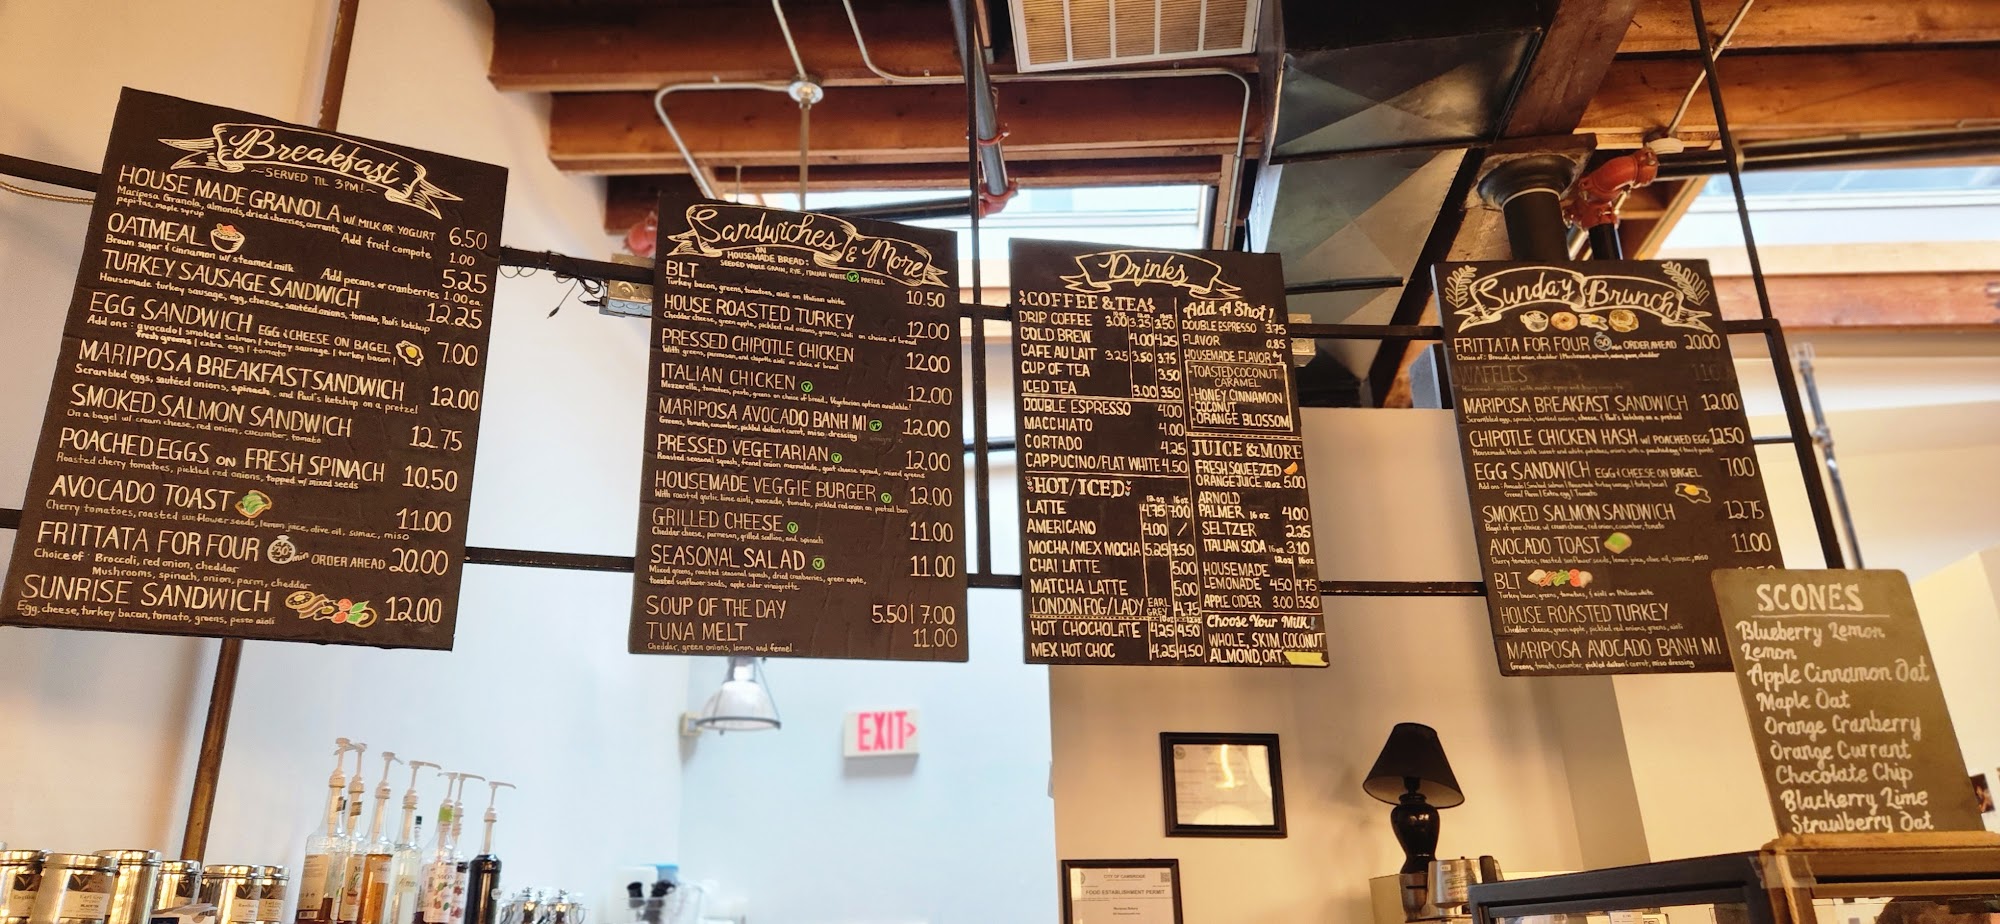 Breakfast
~SERVED TIL 3PM!~
HOUSE MADE GRANOLA W/ MILK OR YOGURT 6.50
Mariposa Granola, almonds, dried cherries, currants,
pepitas, maple syrup
Add fruit compote 1.00
OATMEAL 5.25
Brown sugar & cinnamon w/ steamed milk Add pecans or cranberries 1.00 ea.
TURKEY SAUSAGE SANDWICH 12.25
Housemade turkey sausage, egg, cheese, sautéed onions, tomato, Paul's ketchup
EGG SANDWICH EGG & CHEESE ON BAGEL 7.00
Add ons: avocado | smoked salmon | turkey sausage | turkey bacon |
fresh greens | extra egg | tomato
MARIPOSA BREAKFAST SANDWICH 12.00
Scrambled eggs, sautéed onions, spinach, and Paul's ketchup on a pretzel
SMOKED SALMON SANDWICH 12.75
On a bagel w/ cream cheese, red onion, cucumber, tomato
POACHED EGGS ON FRESH SPINACH 10.50
Roasted cherry tomatoes, pickled red onions, topped w/ mixed seeds
AVOCADO TOAST 11.00
Cherry tomatoes, roasted sunflower seeds, lemon juice, olive oil, sumac, miso
FRITTATA FOR FOUR 30 min ORDER AHEAD 20.00
Choice of: Broccoli, red onion, cheddar
Mushrooms, spinach, onion, parm, cheddar
SUNRISE SANDWICH 12.00
Egg, cheese, turkey bacon, tomato, greens, pesto aioli
Sandwiches & More
ON HOUSEMADE BREAD:
SEEDED WHOLE GRAIN, RYE, ITALIAN WHITE V+ PRETZEL
BLT 10.50
Turkey bacon, greens, tomatoes, aioli on Italian white
HOUSE ROASTED TURKEY 12.00
Cheddar cheese, green apple, pickled red onions, greens, aioli on choice of bread
PRESSED CHIPOTLE CHICKEN 12.00
With greens, parmesan, and chipotle aioli on choice of bread
ITALIAN CHICKEN V 12.00
Mozzarella, tomatoes, pesto, greens on choice of bread. Vegetarian option available!
MARIPOSA AVOCADO BANH MI V+ 12.00
Greens, tomato, cucumber, pickled daikon & carrot, miso dressing
PRESSED VEGETARIAN V 12.00
Roasted seasonal squash, fennel onion marmalade, goat cheese spread, mixed greens
HOUSEMADE VEGGIE BURGER V 12.00
With roasted garlic lime aioli, avocado, tomato, pickled red onion on pretzel bun
GRILLED CHEESE V 11.00
Cheddar cheese, parmesan, grilled scallion, and spinach
SEASONAL SALAD V 11.00
Mixed greens, roasted seasonal squash, dried cranberries, green apple,
toasted sunflower seeds, apple cider vinaigrette
SOUP OF THE DAY 5.50 | 7.00
TUNA MELT 11.00
Cheddar, green onions, lemon, and fennel
Drinks
COFFEE & TEA
DRIP COFFEE 3.00 3.25 3.50
COLD BREW 4.00 4.25
CAFE AU LAIT 3.25 3.50 3.75
CUP OF TEA 3.50
ICED TEA 3.00 3.50
DOUBLE ESPRESSO 4.00
MACCHIATO 4.00
CORTADO 4.25
CAPPUCINO/FLAT WHITE 4.50
HOT/ICED 12oz 16oz
LATTE 4.75 7.00
AMERICANO 4.00 /
MOCHA/MEX MOCHA 5.25 7.50
CHAI LATTE 5.00
MATCHA LATTE 5.00
LONDON FOG/LADY EARL GREY 4.75
HOT CHOCHOLATE 4.25 4.50
MEX HOT CHOC 4.25 4.50
Add A Shot!
DOUBLE ESPRESSO 3.75
FLAVOR 0.85
HOUSEMADE FLAVOR
-TOASTED COCONUT
CARAMEL
-HONEY CINNAMON
-COCONUT
-ORANGE BLOSSOM
JUICE & MORE
FRESH SQUEEZED
ORANGE JUICE 10 oz 5.00
ARNOLD
PALMER 16 oz 4.00
SELTZER 2.25
ITALIAN SODA 16 oz 3.10
12oz 16oz
HOUSEMADE
LEMONADE 4.50 4.75
APPLE CIDER 3.00 3.50
Choose Your Milk!
WHOLE, SKIM, COCONUT
ALMOND, OAT
Sunday Brunch
FRITTATA FOR FOUR 30 min ORDER AHEAD 20.00
Choice of: Broccoli, red onion, cheddar | Mushrooms, spinach, onion, parm, cheddar
WAFFLES
MARIPOSA BREAKFAST SANDWICH 12.00
Scrambled eggs, spinach, sautéed onions, cheese, & Paul's ketchup on a pretzel
CHIPOTLE CHICKEN HASH W/ POACHED EGG 12.50
EGG SANDWICH EGG & CHEESE ON BAGEL 7.00
Add ons: Avocado | Smoked salmon | Housemade turkey sausage | turkey bacon |
Greens | Parm | Extra egg | Tomato
SMOKED SALMON SANDWICH 12.75
Bagel of your choice w/ cream cheese, red onion, cucumber, tomato
AVOCADO TOAST 11.00
Cherry tomatoes, roasted sunflower seeds, lemon juice, olive oil, sumac, miso
BLT
Turkey bacon, greens, tomatoes, & aioli on Italian white
HOUSE ROASTED TURKEY
Cheddar cheese, green apple, pickled red onions, greens, aioli
MARIPOSA AVOCADO BANH MI
Greens, tomato, cucumber, pickled daikon & carrot, miso dressing
SCONES
Blueberry Lemon
Lemon
Apple Cinnamon Oat
Maple Oat
Orange Cranberry
Orange Currant
Chocolate Chip
Blackerry Lime
Strawberry Oat
EXIT
CITY OF CAMBRIDGE
FOOD ESTABLISHMENT PERMIT